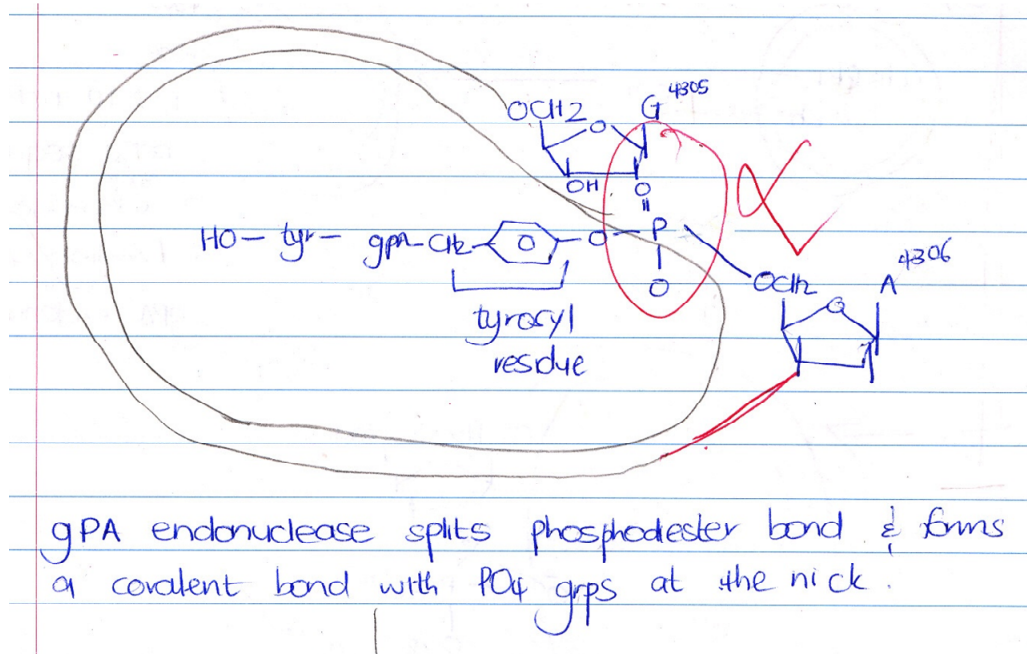 4305
OCH2 G
O
OH O
HO- tyr- gpA-CH2- O -O-P
O
OCH2 A 4306
O
tyrosyl
residue
gPA endonuclease splits phosphodester bond & forms
a covalent bond with PO4 grps at the nick.